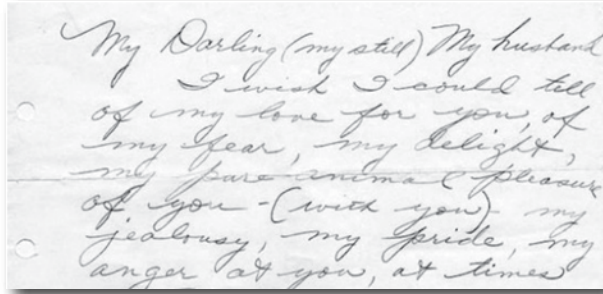 My Darling (my still) My husband
I wish I could tell
of my love for you, of
my fear, my delight,
my pure animal pleasure
of you - (with you) - my
jealousy, my pride, my
anger at you, at times